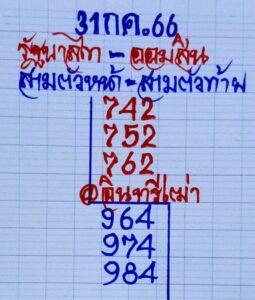 31กค.66
รัฐบาลไทย - ออมสิน
สามตัวหน้า - สามตัวท้าย
742
752
762
@อินทรีเฒ่า
964
974
984